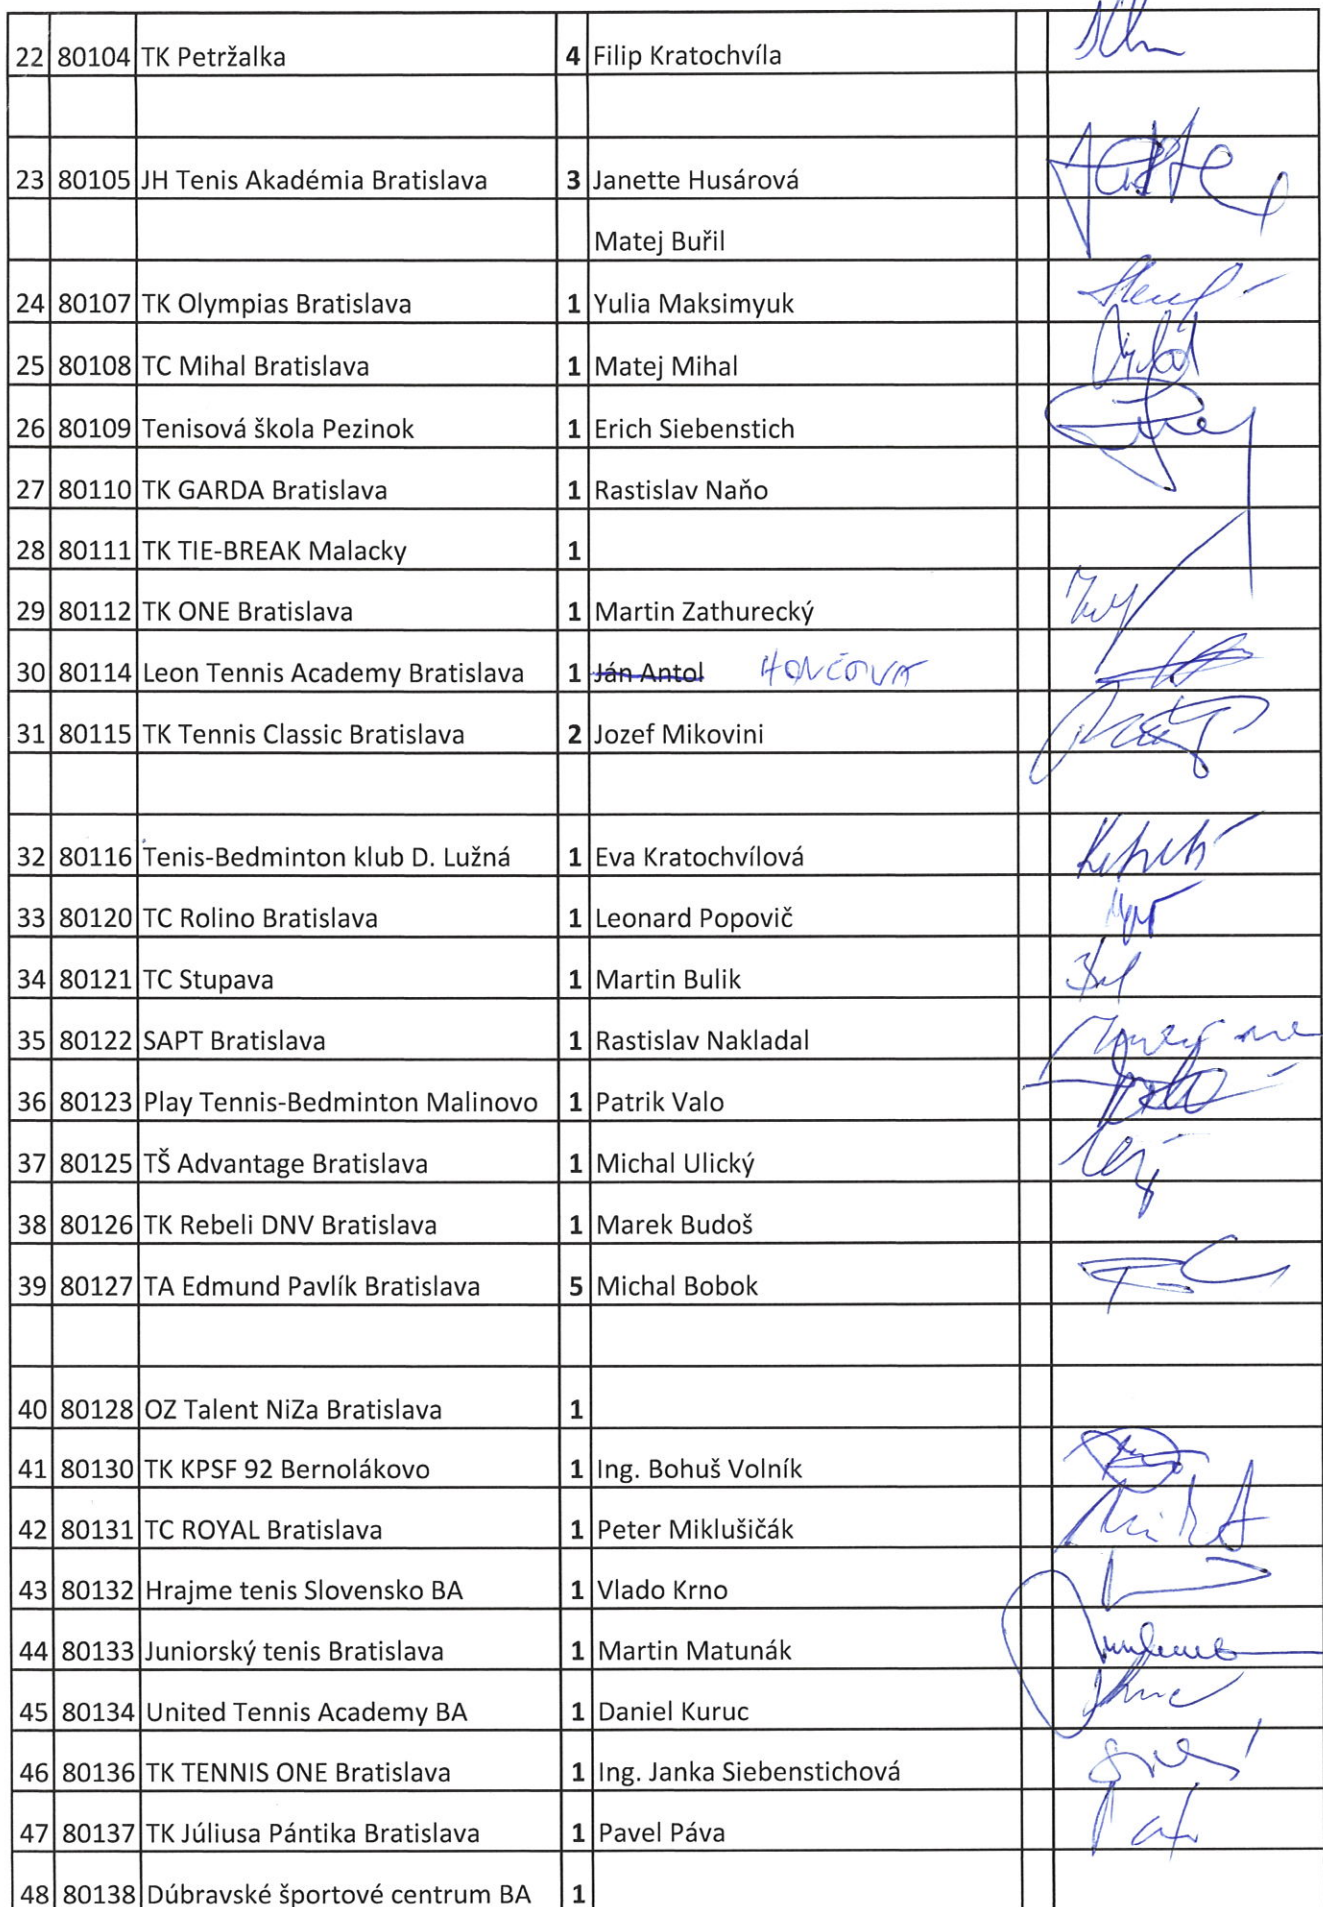 22 80104 TK Petržalka 4 Filip Kratochvíla
23 80105 JH Tenis Akadémia Bratislava 3 Janette Husárová
Matej Buřil
24 80107 TK Olympias Bratislava 1 Yulia Maksimyuk
25 80108 TC Mihal Bratislava 1 Matej Mihal
26 80109 Tenisová škola Pezinok 1 Erich Siebenstich
27 80110 TK GARDA Bratislava 1 Rastislav Naňo
28 80111 TK TIE-BREAK Malacky 1
29 80112 TK ONE Bratislava 1 Martin Zathurecký
30 80114 Leon Tennis Academy Bratislava 1 Ján Antol HONČOVA
31 80115 TK Tennis Classic Bratislava 2 Jozef Mikovini
32 80116 Tenis-Bedminton klub D. Lužná 1 Eva Kratochvílová
33 80120 TC Rolino Bratislava 1 Leonard Popovič
34 80121 TC Stupava 1 Martin Bulik
35 80122 SAPT Bratislava 1 Rastislav Nakladal
36 80123 Play Tennis-Bedminton Malinovo 1 Patrik Valo
37 80125 TŠ Advantage Bratislava 1 Michal Ulický
38 80126 TK Rebeli DNV Bratislava 1 Marek Budoš
39 80127 TA Edmund Pavlík Bratislava 5 Michal Bobok
40 80128 OZ Talent NiZa Bratislava 1
41 80130 TK KPSF 92 Bernolákovo 1 Ing. Bohuš Volník
42 80131 TC ROYAL Bratislava 1 Peter Miklušičák
43 80132 Hrajme tenis Slovensko BA 1 Vlado Krno
44 80133 Juniorský tenis Bratislava 1 Martin Matunák
45 80134 United Tennis Academy BA 1 Daniel Kuruc
46 80136 TK TENNIS ONE Bratislava 1 Ing. Janka Siebenstichová
47 80137 TK Júliusa Pántika Bratislava 1 Pavel Páva
48 80138 Dúbravské športové centrum BA 1